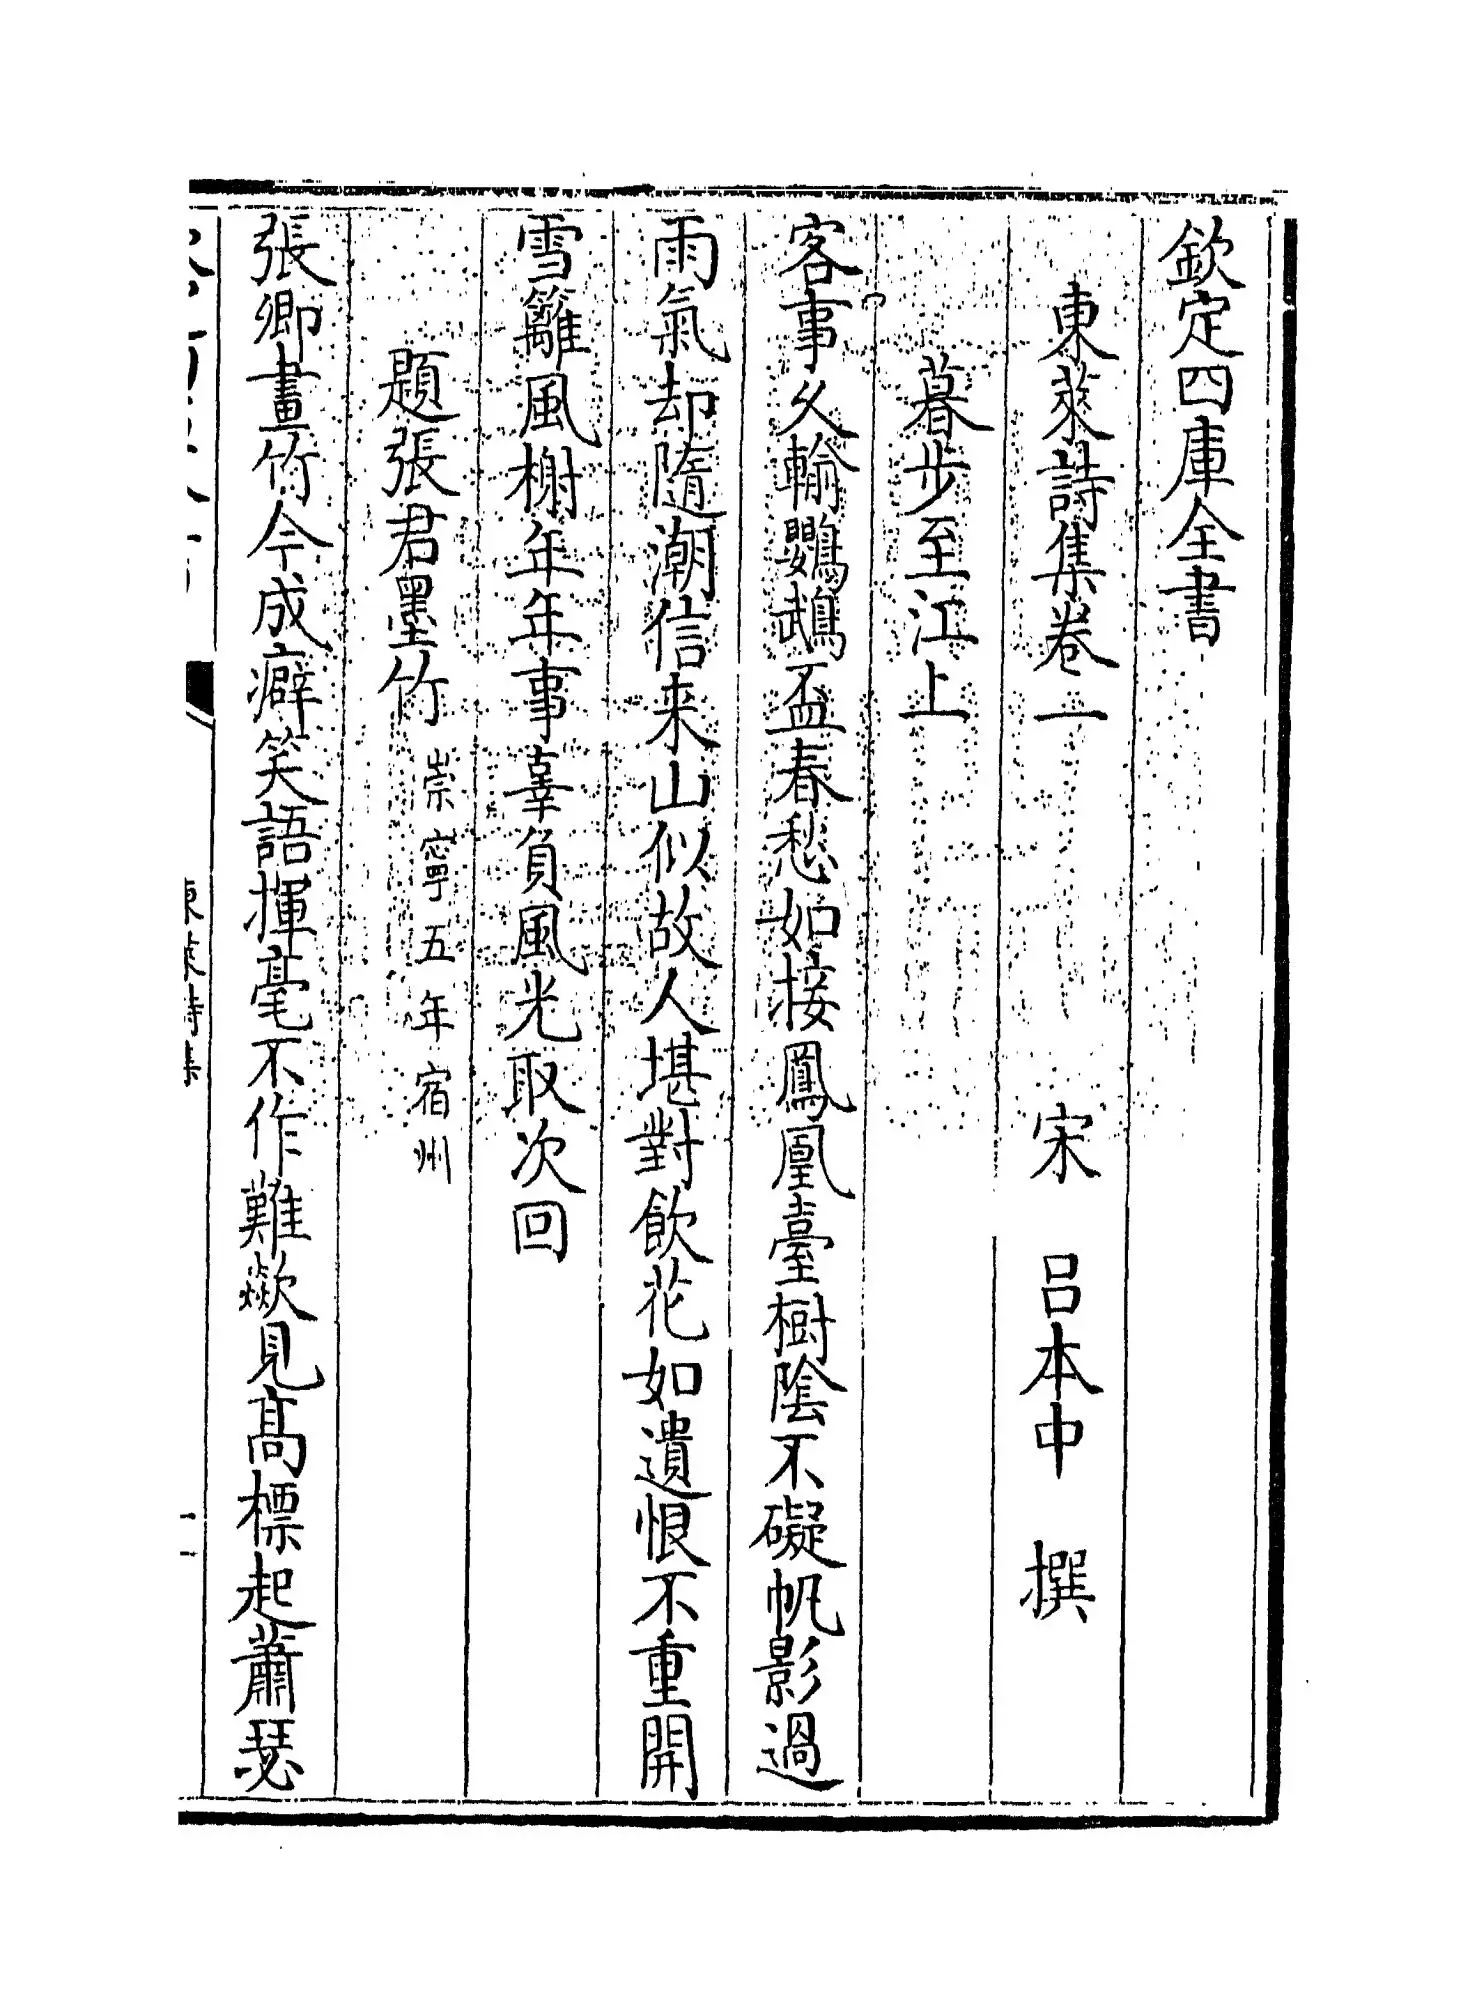 欽定四庫全書
東萊詩集卷一 宋 呂本中 撰
暮步至江上
客事久輸鸚鵡盃春愁如接鳳凰臺樹陰不礙帆影過
雨氣却隨潮信来山似故人堪對飲花如遺恨不重開
雪籬風榭年年事辜負風光取次回
題張君墨竹 崇寧五年宿州
張卿畫竹今成癖笑語揮毫不作難歘見髙標起蕭瑟
東萊詩集
一